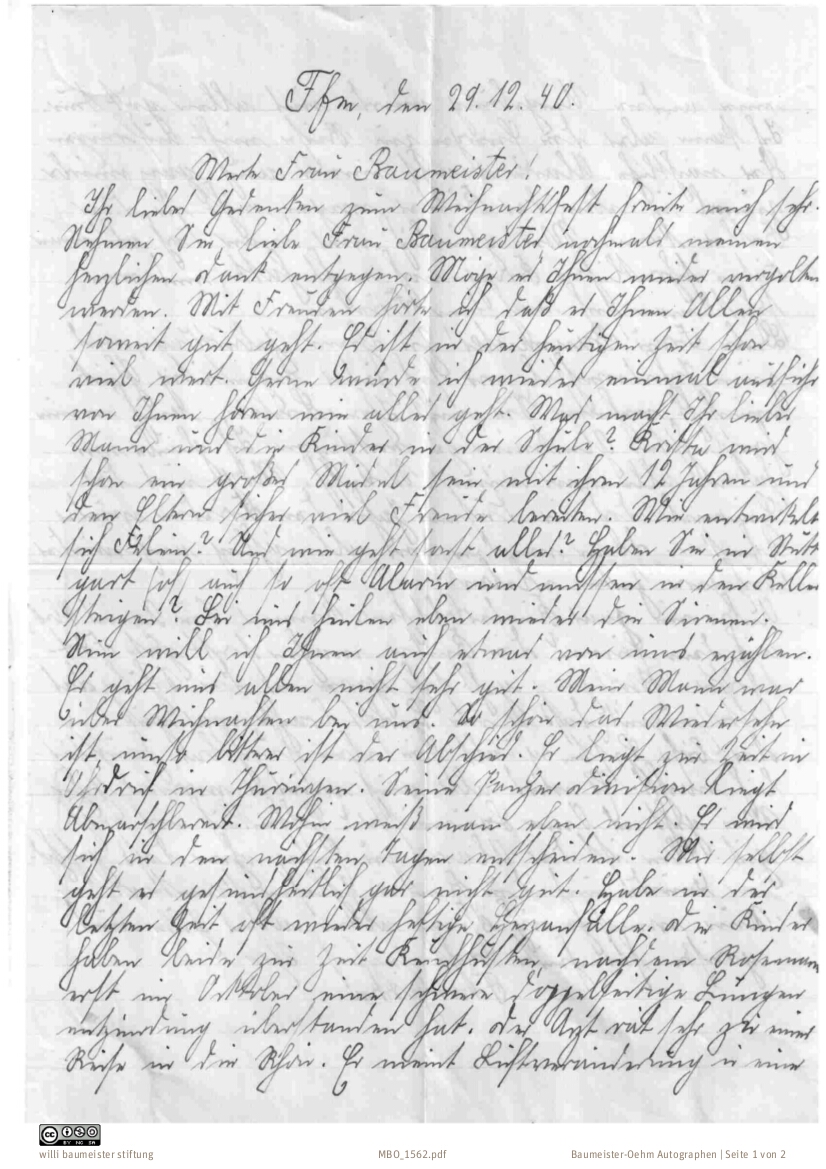 Ffm, den 29.12.40.
Werte Frau Baumeister!
Ihr liebes Gedenken zum Weihnachtsfest freute mich sehr.
Nehmen Sie liebe Frau Baumeister nochmals meinen
herzlichen Dank entgegen. Möge es Ihnen wieder vergolten
werden. Mit Freuden hörte ich daß es Ihnen Allen
soweit gut geht. Es ist in der heutigen Zeit schon
viel wert. Gerne würde ich wieder einmal ausführ
von Ihnen hören wie alles geht. Was macht Ihr lieber
Mann und die Kinder in der Schule? Krista wird
schon ein großes Mädel sein mit ihren 12 Jahren und
den Eltern sicher viel Freude bereiten. Wie entwikelt
sich Felein? Und wie geht sonst alles? Haben Sie in Stutt
gart auch so oft Alarm und müssen in den Keller
steigen? Bei uns heulen eben wieder die Sirenen.
Nun will ich Ihnen auch etwas von uns erzählen.
Es geht uns allen nicht sehr gut. Mein Mann war
über Weihnachten bei uns. So schön das Wiedersehn
ist, umso bitterer ist der Abschied. Er liegt zur Zeit in
Ohrdruf in Thüringen. Seine Panzerdivision liegt
Abmarschbereit. Wohin weiß man eben nicht. Es wird
sich in den nächsten Tagen entscheiden. Mir selbst
geht es gesundheitlich gar nicht gut. Habe in der
letzten Zeit oft wieder heftige Herzanfälle. Die Kinder
haben beide zur Zeit Keuchhusten, nachdem Rosemarie
erst im Oktober eine schwere doppelseitige Lungen
entzündung überstanden hat. Der Arzt rät sehr zu einer
Reise in die Rhön. Er meint Luftveränderung u eine
willi baumeister stiftung
MBO_1562.pdf
Baumeister-Oehm Autographen | Seite 1 von 2